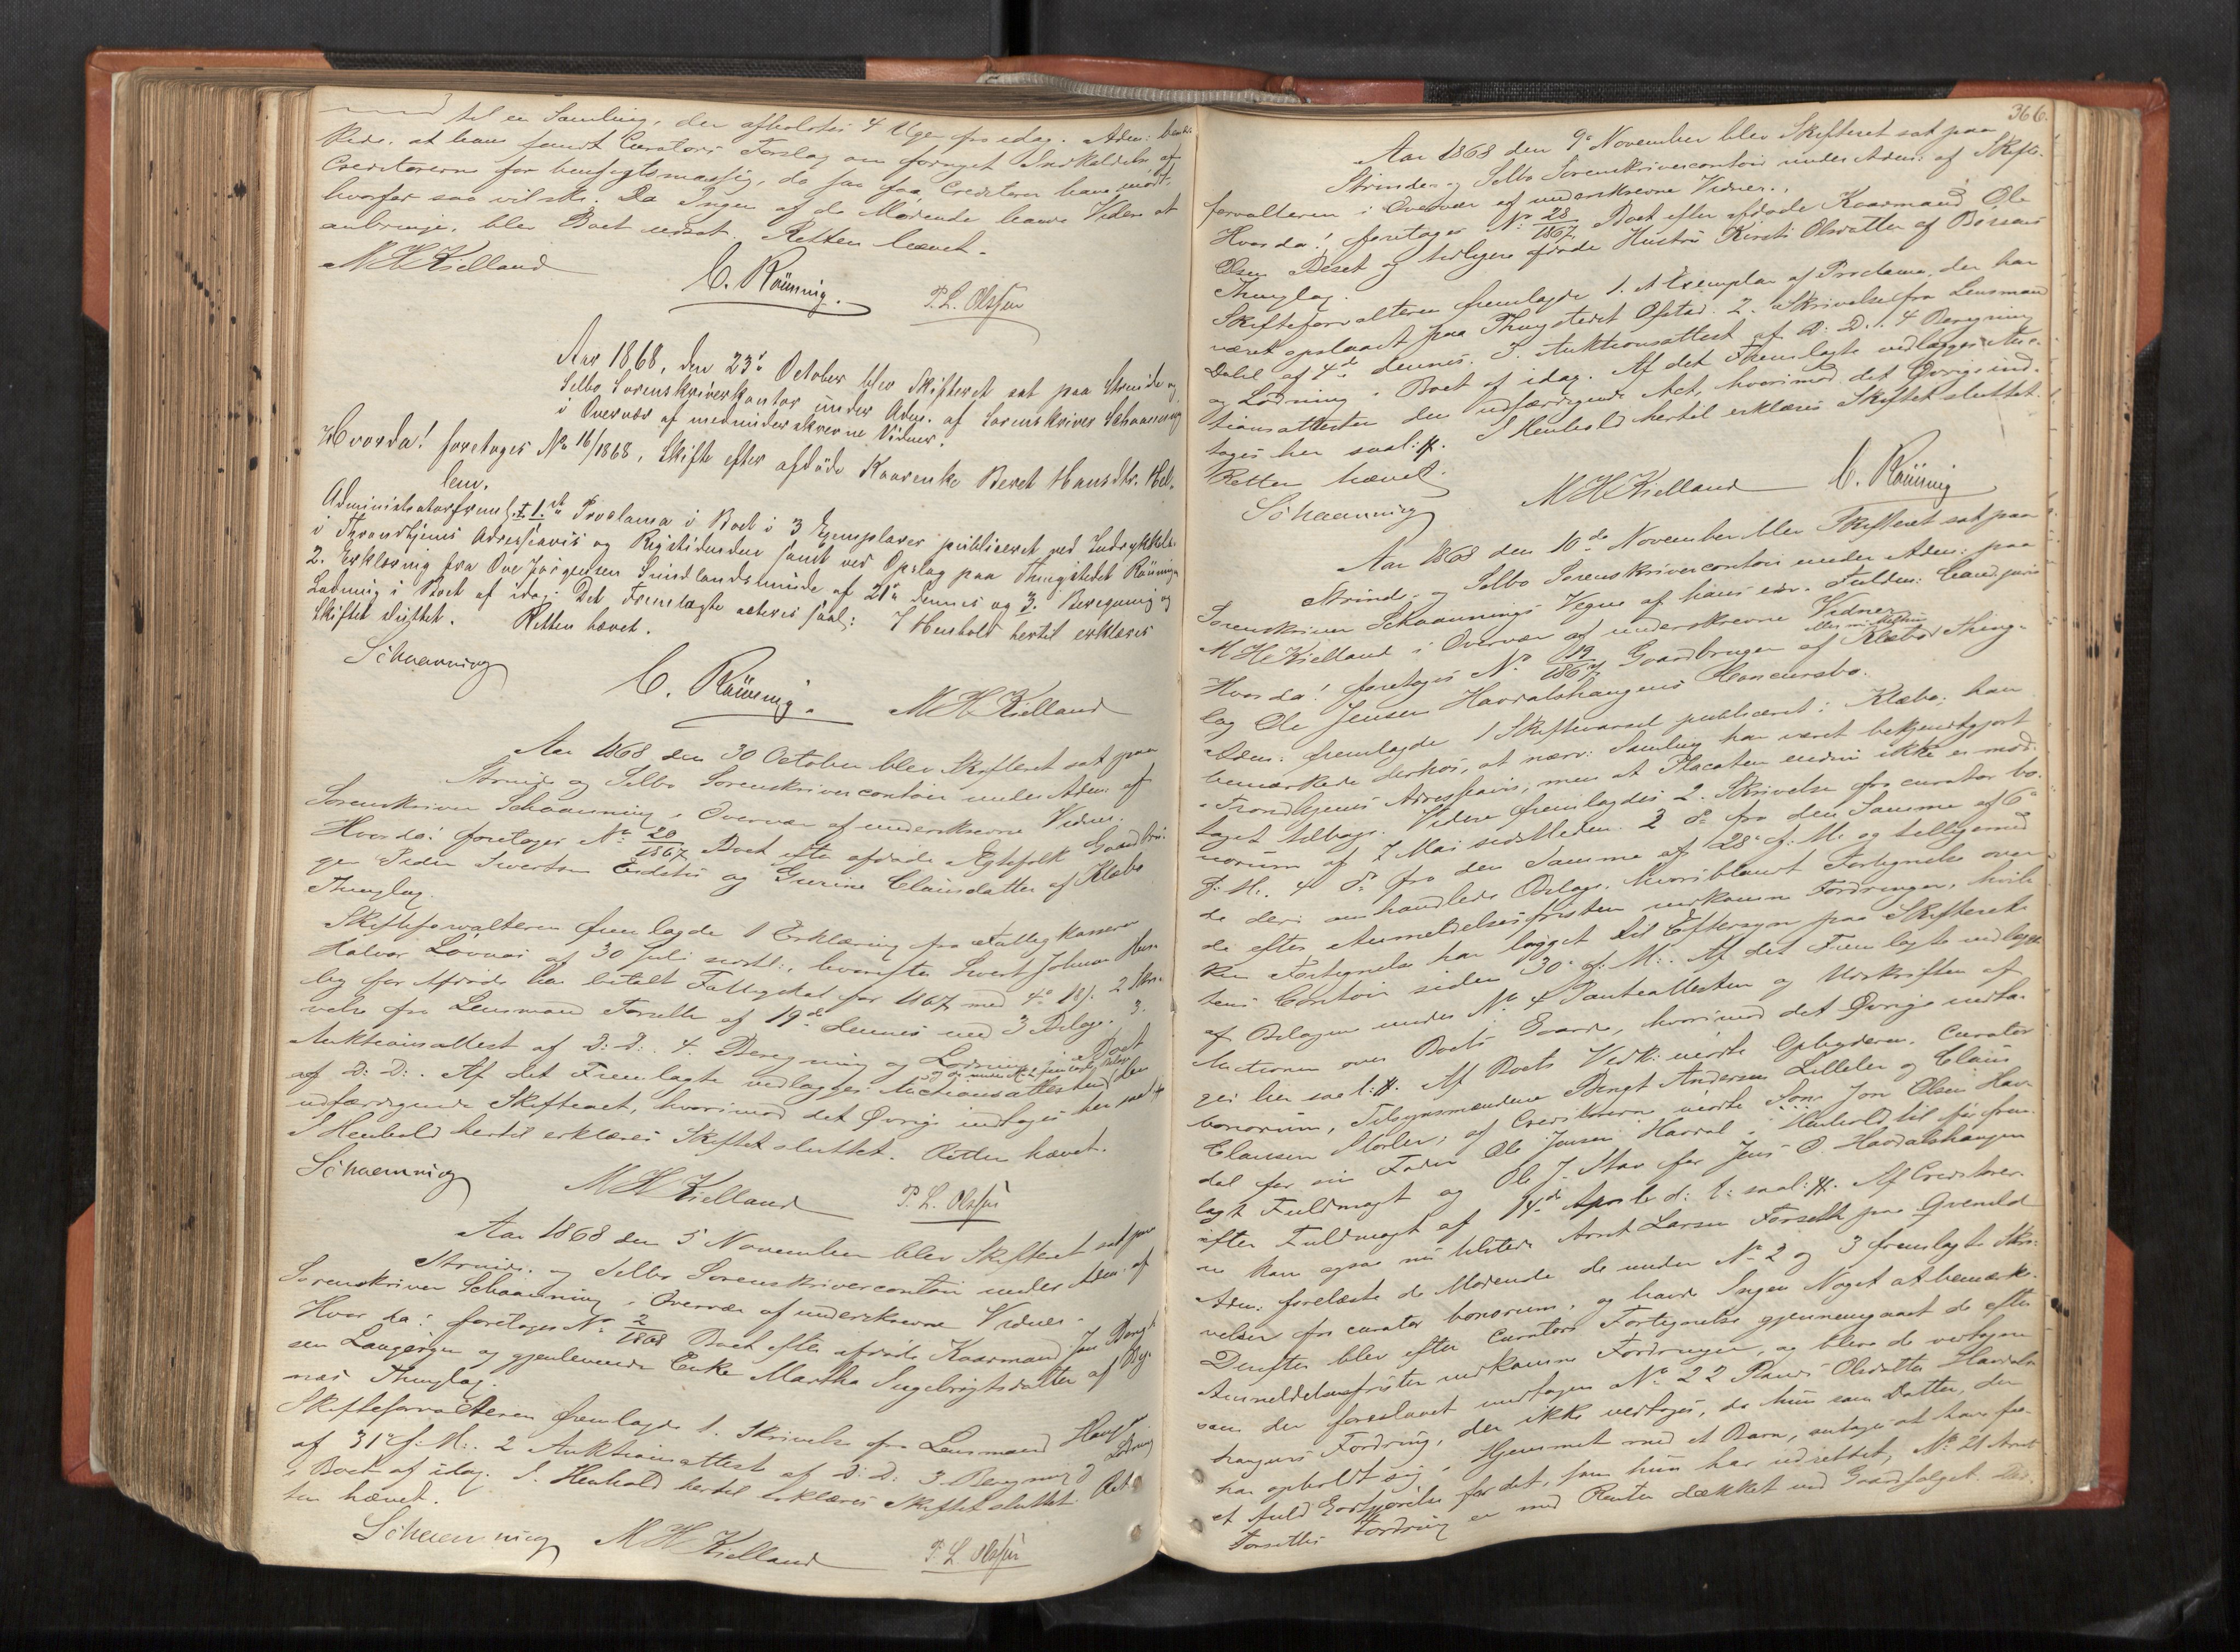 til en Samling, der afholdes 4 Uger fra idag. Adm: bemær-
kede, at han fandt Curators Forslag om fornyet Indkaldelse af
Creditorerne for hensigtsmæssig, da saa faa Creditorer have mødt,
hvorfor saa vil ske. Da Ingen af de Mødende havde Videre at
anbringe, blev Boet udsat. Retten hævet.
M H Kielland C. Rönning. P. L. Olssen
Aar 1868, den 23de October blev Skifteret sat paa Strinde og
Selbo Sorenskriverkontor under Adm. af Sorenskriver Schaanning
i Overvær af medunderskrevne Vidner.
Hvorda! foretoges No 16/1868, Skifte efter afdøde Kaarenke Beret Hansdtr. Hel-
lem.
Administrator freml. 1. Proclama i Boet i 3 Exemplarer publiceret ved Indrykkelse
i Throndhjems Adresseavis og Rigstidenden samt ved Opslag paa Thingstedet Rönningen
2. Erklæring fra Ove Jørgensen Sundlandsminde af 21de dennes og 3. Beregning og
Lodning i Boet af idag. Det Fremlagte acteres saal: I Henhold hertil erklæres
Skiftet sluttet. Retten hævet.
Schaanning C. Rönning. M H Kielland
Aar 1868 den 30 October blev Skifteret sat paa
Strinde og Selbo Sorenskrivercontoir under Adm: af
Sorenskriver Schaanning i Overvær af underskrevne Vidner.
Hvorda! foretoges No 20/1867 Boet efter afdøde Ægtefolk Gaardbru-
ger Peder Sivertsen Eidstu og Gurine Clausdatter af Klæbo
Thinglag.
Skifteforvalteren fremlagde 1 Erklæring fra Fattigkasserer
Halvor Løvaas af 30 Juli sidstl:, hvorefter Sivert Johnsen
lig for Afdøde har betalt Fattigskat for 1867 med 2 Skri-
velse fra Lensmand Forseth af 19de dennes med 3 Bilage. 3.
Auktionsattest af D: D:. 4. Beregning og Lodning i Boet
af D: D:. Af det Fremlagte vedlægges Auctionsattesten den
udfærdigende Skifteact, hvorimod det Øvrige indtages her saal:
I Henhold hertil erklæres Skiftet sluttet. Retten hævet.
Schaanning M H Kielland P. L. Olssen
Aar 1868 den 5 November blev Skifteret sat paa
Strinde- og Selbo Sorenskrivercontoir under Adm: af
Sorenskriver Schaanning i Overvær af underskrevne Vidner.
Hvor da! foretoges No 2/1868 Boet efter afdøde Kaarmand Jon Bengt-
sen Langørgen og gjenlevende Enke Martha Ingebrigtsdatter af By-
næs Thinglag.
Skifteforvalteren fremlagde 1. Skrivelse fra Lensmand
af 31te f: M:. 2 Auktionsattest af D: D: 3. Beregning og Lodning
i Boet af idag. I Henhold hertil erklæres Skiftet sluttet. Ret-
ten hævet.
Schaanning M H Kielland P. L. Olssen
366.
Aar 1868 den 9de November blev Skifteret sat paa
Strinde- og Selbo Sorenskrivercontoir under Adm: af Skifte-
forvalteren i Overvær af underskrevne Vidner.
Hvor da! foretoges No 28/1867 Boet efter afdøde Kaarmand Ole
Olsen Beset og tidligere afdøde Hustru Kirsti Olsdatter af Børsens
Thinglag.
Skifteforvalteren fremlagde 1. et Exemplar af Proclama, der har
været opslaaet paa Thingstedet Ofstad. 2. Skrivelse fra Lensmand
Dahl af 4de dennes. 3. Auktionsattest af D: D:. 4 Beregning
og Lodning i Boet af idag. Af det Fremlagte vedlægges Auc-
tionsattesten den udfærdigende Act, hvorimod det Øvrige ind-
tages her saal:. I Henhold hertil erklæres Skiftet sluttet.
Retten hævet.
Schaanning M H Kielland C. Rönning
Aar 1868 den 10de November blev Skifteret sat paa
Strinde- og Selbo Sorenskrivercontoir under Adm: paa
Sorenskriver Schaannings Vegne af hans edsv. Fuldm: Cand. juris
M H Kielland i Overvær af underskrevne Vidner
Hvor da! foretoges No 19/1867 Gaardbruger af Klæbo Thing-
lag Ole Jensen Havdalshaugens Concursbo.
Adm: fremlagde 1 Skiftevarsel publiceret i Klæbo; han
bemærkede derhos, at nærv: Samling har været bekjendtgjort
i Trondhjems Adresseavis, men at Placaten endnu ikke er mod-
taget tilbage. Videre fremlagdes 2. Skrivelse fra curator bo-
norum af 7 Mai sidstleden. 3 Do fra den Samme af 6te
f: M:. 4 Do fra den Samme af 28de f: M: og tilligemed
de deri omhandlede Bilage, hvoriblandt Fortegnelse over
de efter Anmeldelsesfristen indkomne Fordringer, hvil-
ken Fortegnelse har ligget til Eftersyn paa Skifteret-
tens Contoir siden 30te f: M:. Af det Fremlagte vedlægges
af Bilagene under No 4 Panteattesten og Udskriften af
Auctionen over Boets Gaard, hvorimod det Øvrige indta-
ges her saal:. Af Boets Vedk: mødte Opbyderen, Curator
bonorum, Tilsynsmændene Bengt Andersen Lilleler og Claus
Clausen Storler; af Creditorerne mødte Jon Olsen Hav-
dal for sin Fader Ole Jensen Havdal i Henhold til før frem-
lagt Fuldmagt og Ole J. Stav for Jens O. Havdalshaugen
efter Fuldmagt af 14de April d: A: saal:. Af Creditorer-
ne kom ogsaa nu tilstede Arnt Larsen Forseth paa Qvemeld
Adm: forelæste de Mødende de under No 2 og 3 fremlagte Skri-
velser fra curator bonorum, og havde Ingen Noget at bemærke.
Derefter blev efter Curators Fortegnelse gjennemgaaet de efter
Anmeldelsesfristen indkomne Fordringer, og bleve de vedtagne
som der foreslaaet undtagen No 22 Olsdatter Havdals-
haugens Fordring, der ikke vedtages, da hun som Datter, der
har opholdt sig i Hjemmet med et Barn, antages at have faa-
et fuld Godtgjørelse for det, som hun har udrettet, No 21 Arnt
Forseths Fordring er med Renter dækket ved Gaardsalget.